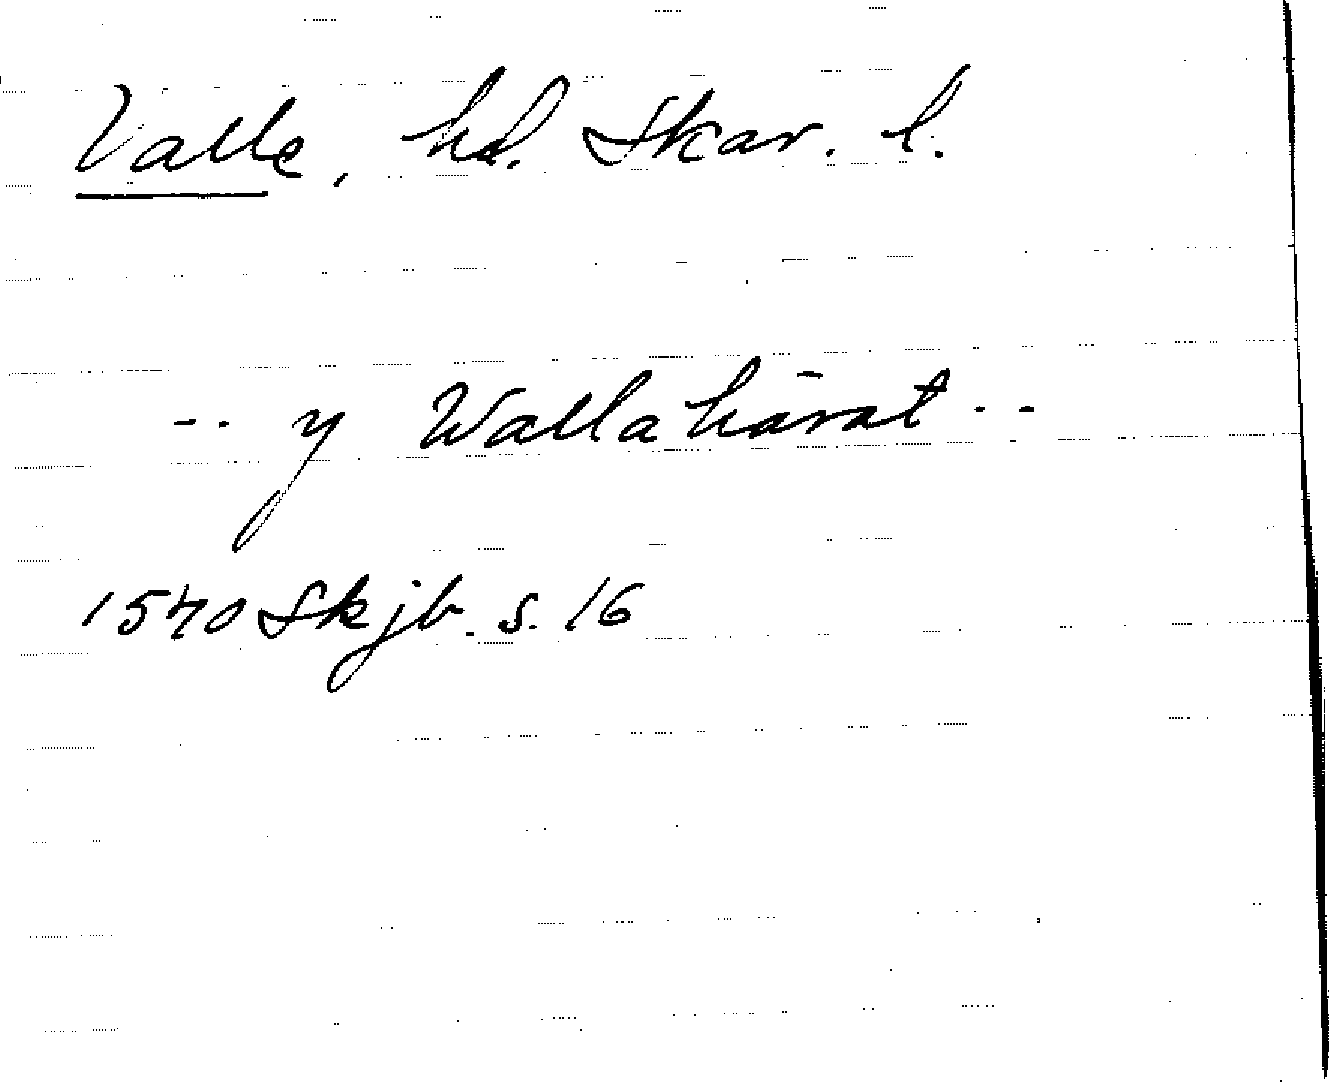 Valle, hd. Skar. l.
-- y Wallahärat --
1540 Skjb. s. 16